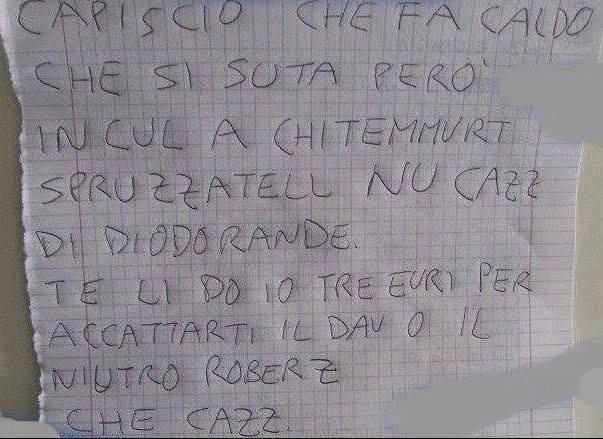 CAPISCIO CHE FA CALDO
CHE SI SUTA PERO'
IN CUL A CHITEMMURT
SPRUZZATELL NU CAZZ
DI DIODORANDE.
TE LI DO IO TRE EURI PER
ACCATTARTI IL DAV O IL
NIUTRO ROBERZ
CHE CAZZ.